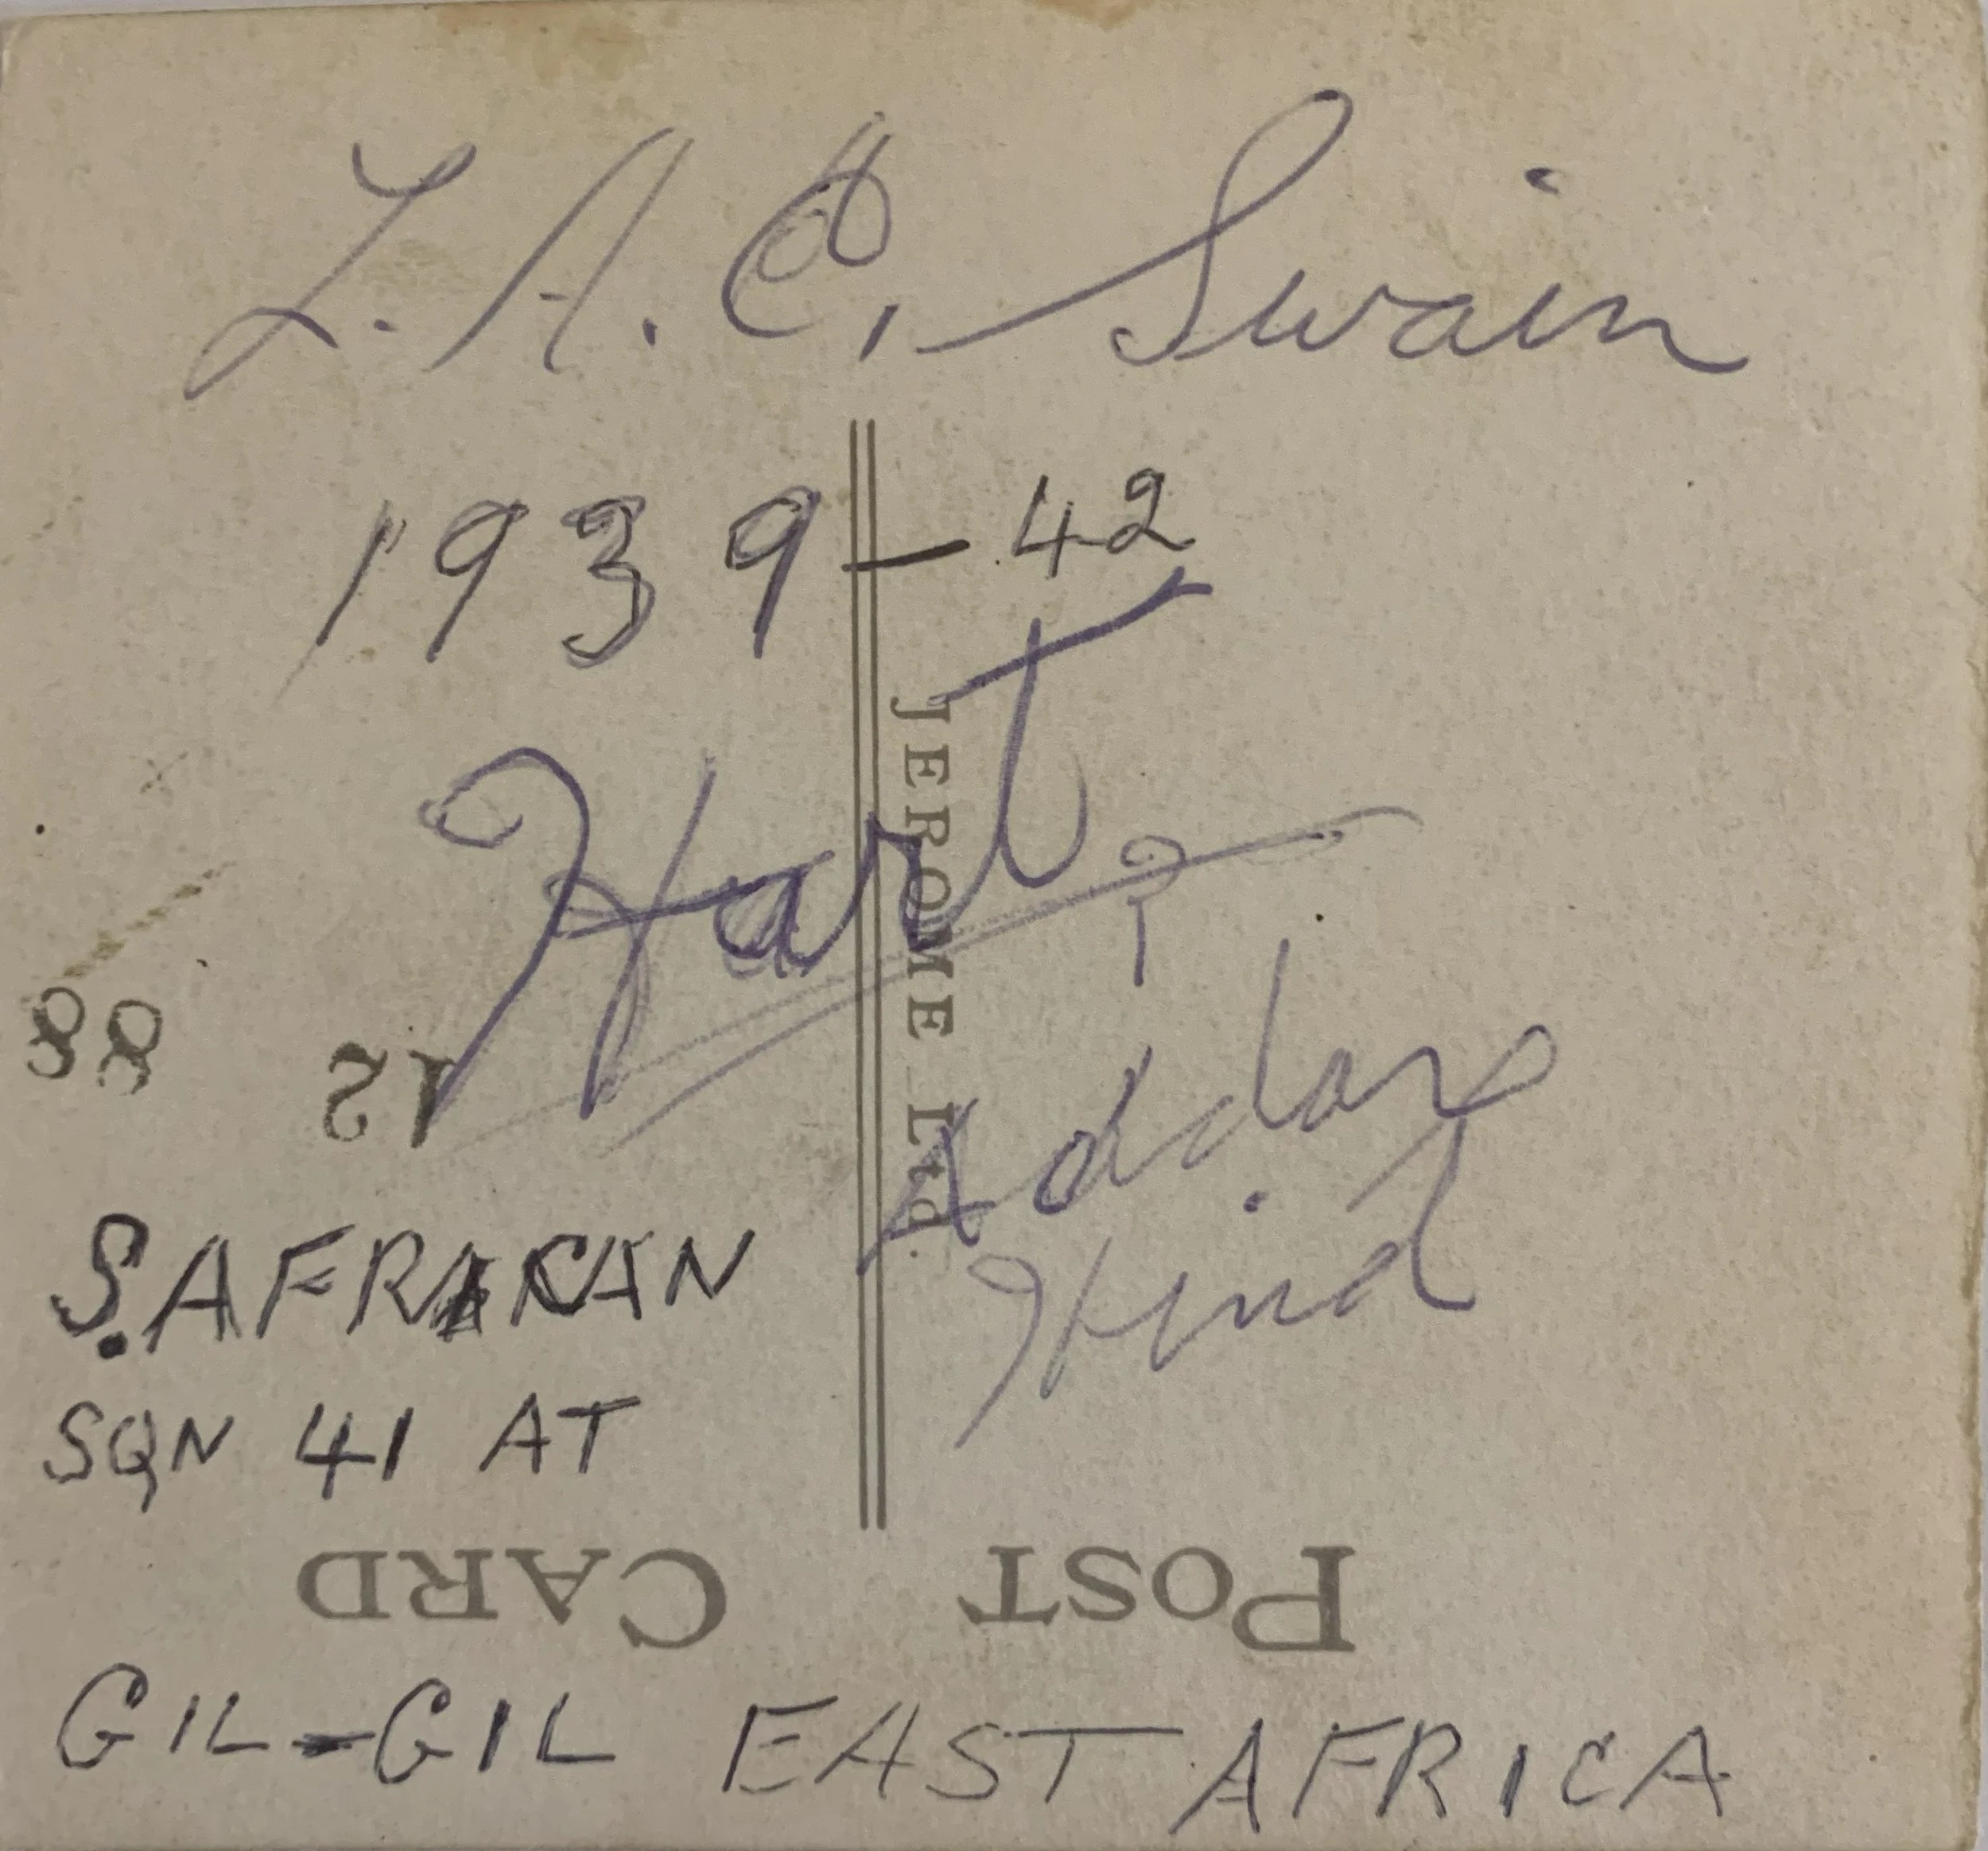 L. A. C. Swain
1939 - 42
Hart ?
JEROME Ltd.
Hind
88 12
S. AFRICAN
SQN 41 AT
POST CARD
GIL-GIL EAST AFRICA